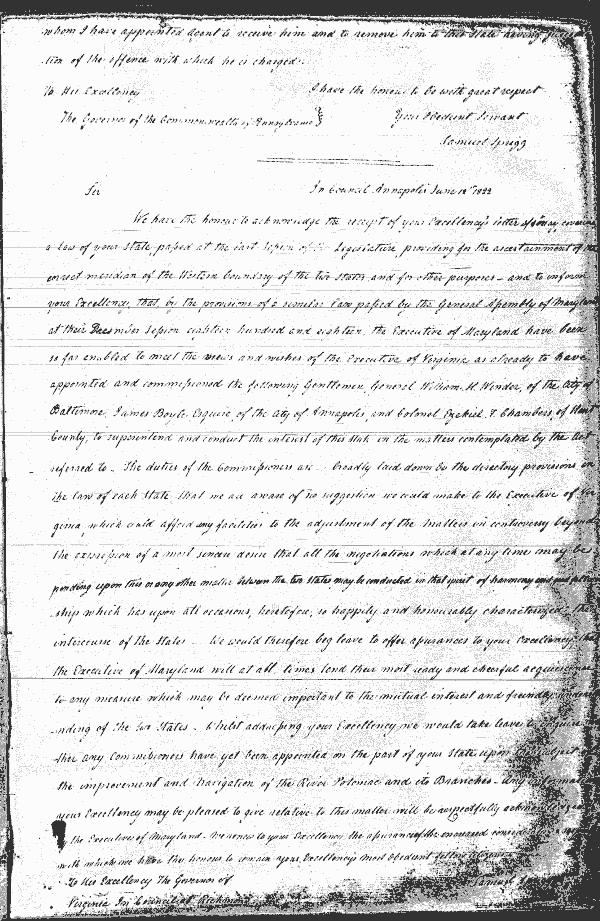 whom I have appointed agent to receive him and to remove him to this State having
tion of the offence with which he is charged.
I have the honour to be with great respect
To His Excellency
Your Obedient Servant
The Governor of the Commonwealth of Pennsylvania }
Samuel Sprigg
In Council Annapolis June 1822
Sir
We have the honour to acknowledge the receipt of your Excellency's letter of
a law of your State, passed at the last Session of Legislature, providing for the ascertainment of the
correct meridian of the Western boundary of the two States and for other purposes - and to inform
your Excellency, that, by the provisions of a similar Law passed by the General Assembly of Maryland
at their December Session eighteen hundred and eighteen, the Executive of Maryland have been
so far enabled to meet the views and wishes of the Executive of Virginia as already to have
appointed and commissioned the following Gentlemen, General William H. Winder, of the City of
Baltimore, James Boyle Esquire, of the City of Annapolis, and Colonel Ezekiel F. Chambers, of Kent
County, to superintend and conduct the interest of this State in the matters contemplated by the Act
referred to - The duties of the Commissioners are broadly laid down by the directory provisions in
the law of each State that we are aware of no suggestion we could make to the Executive of Vir
ginia, which could afford any facilities to the adjustment of the matters in controversy beyond
the expression of a most sincere desire that all the negotiations which at any time may be
pending upon this or any other matter between the two States may be conducted in that spirit of harmony and
ship which has upon all occasions, heretofore, so happily and honourably characterized the
intercourse of the States - We would therefore beg leave to offer assurances to your Excellency that
the Executive of Maryland will at all times lend their most ready and cheerful acquiescence
to any measure which may be deemed important to the mutual interest and friendly under
standing of the two States - Whilst addressing your Excellency we would take leave to enquire
ther any Commissioners have yet been appointed on the part of your State upon subject
the improvement and navigation of the River Potomac and its Branches - Any information
your Excellency may be pleased to give relative to this matter will be respectfully acknowledged
by the Executive of Maryland - We renew to your Excellency the assurances of the
with which we have the honour to remain your Excellency's most obedient
To His Excellency The Governor of
Samuel
Virginia In Council at Richmond